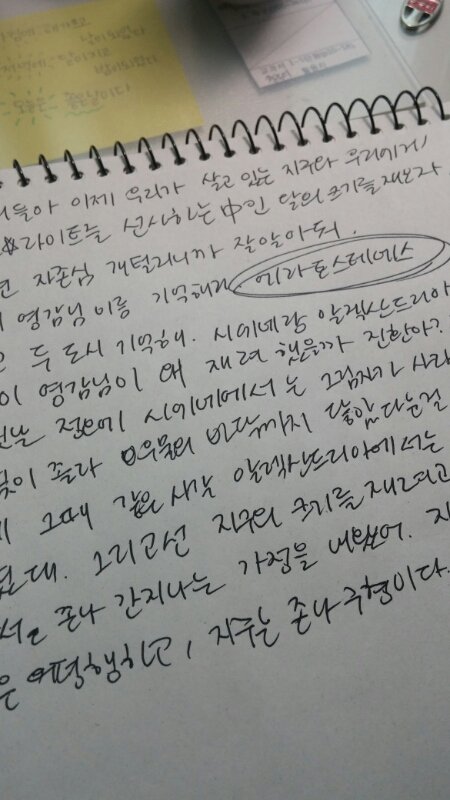 아침에 해가뜨고
낮이되었다
저녁에 달이지고
밤이되었다
오늘은 좋은날이다
들아 이제 우리가 살고 있는 지구와 우리에게
라이트를 선사하는 中인 달의 크기를 재보자
자존심 개털리니까 잘알아둬.
영감님 이름 기억해라 에라토스테네스
두 도시 기억해. 시에네랑 알렉산드리아
이 영감님이 왜 재려 했을까 진환아?
정오에 시에네에서는 그림자가 사라
빛이 졸라 우물의 바닥까지 닿았다는걸
그때 같은 시각 알렉산드리아에서는
대. 그리고선 지구의 크기를 재려고
서 존나 간지나는 가정을 내놨어.
은 평행하고, 지구는 존나 구형이다.